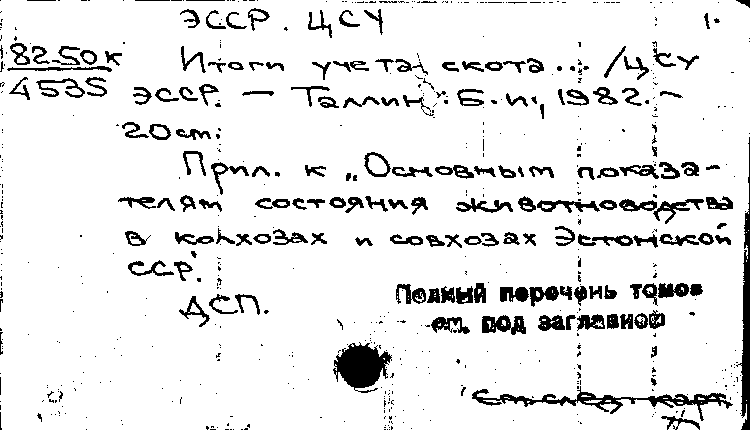 ЭССР. ЦСУ 1.
82-50к Итоги учета скота... /ЦСУ
4535 ЭССР. — Таллин: Б.и., 1982. —
20 см.
Прил. к „Основным показа-
телям состояния животноводства
в колхозах и совхозах Эстонской
ССР.
ДСП.
Полный перечень томов
см. под заглавной
См. след. карт.